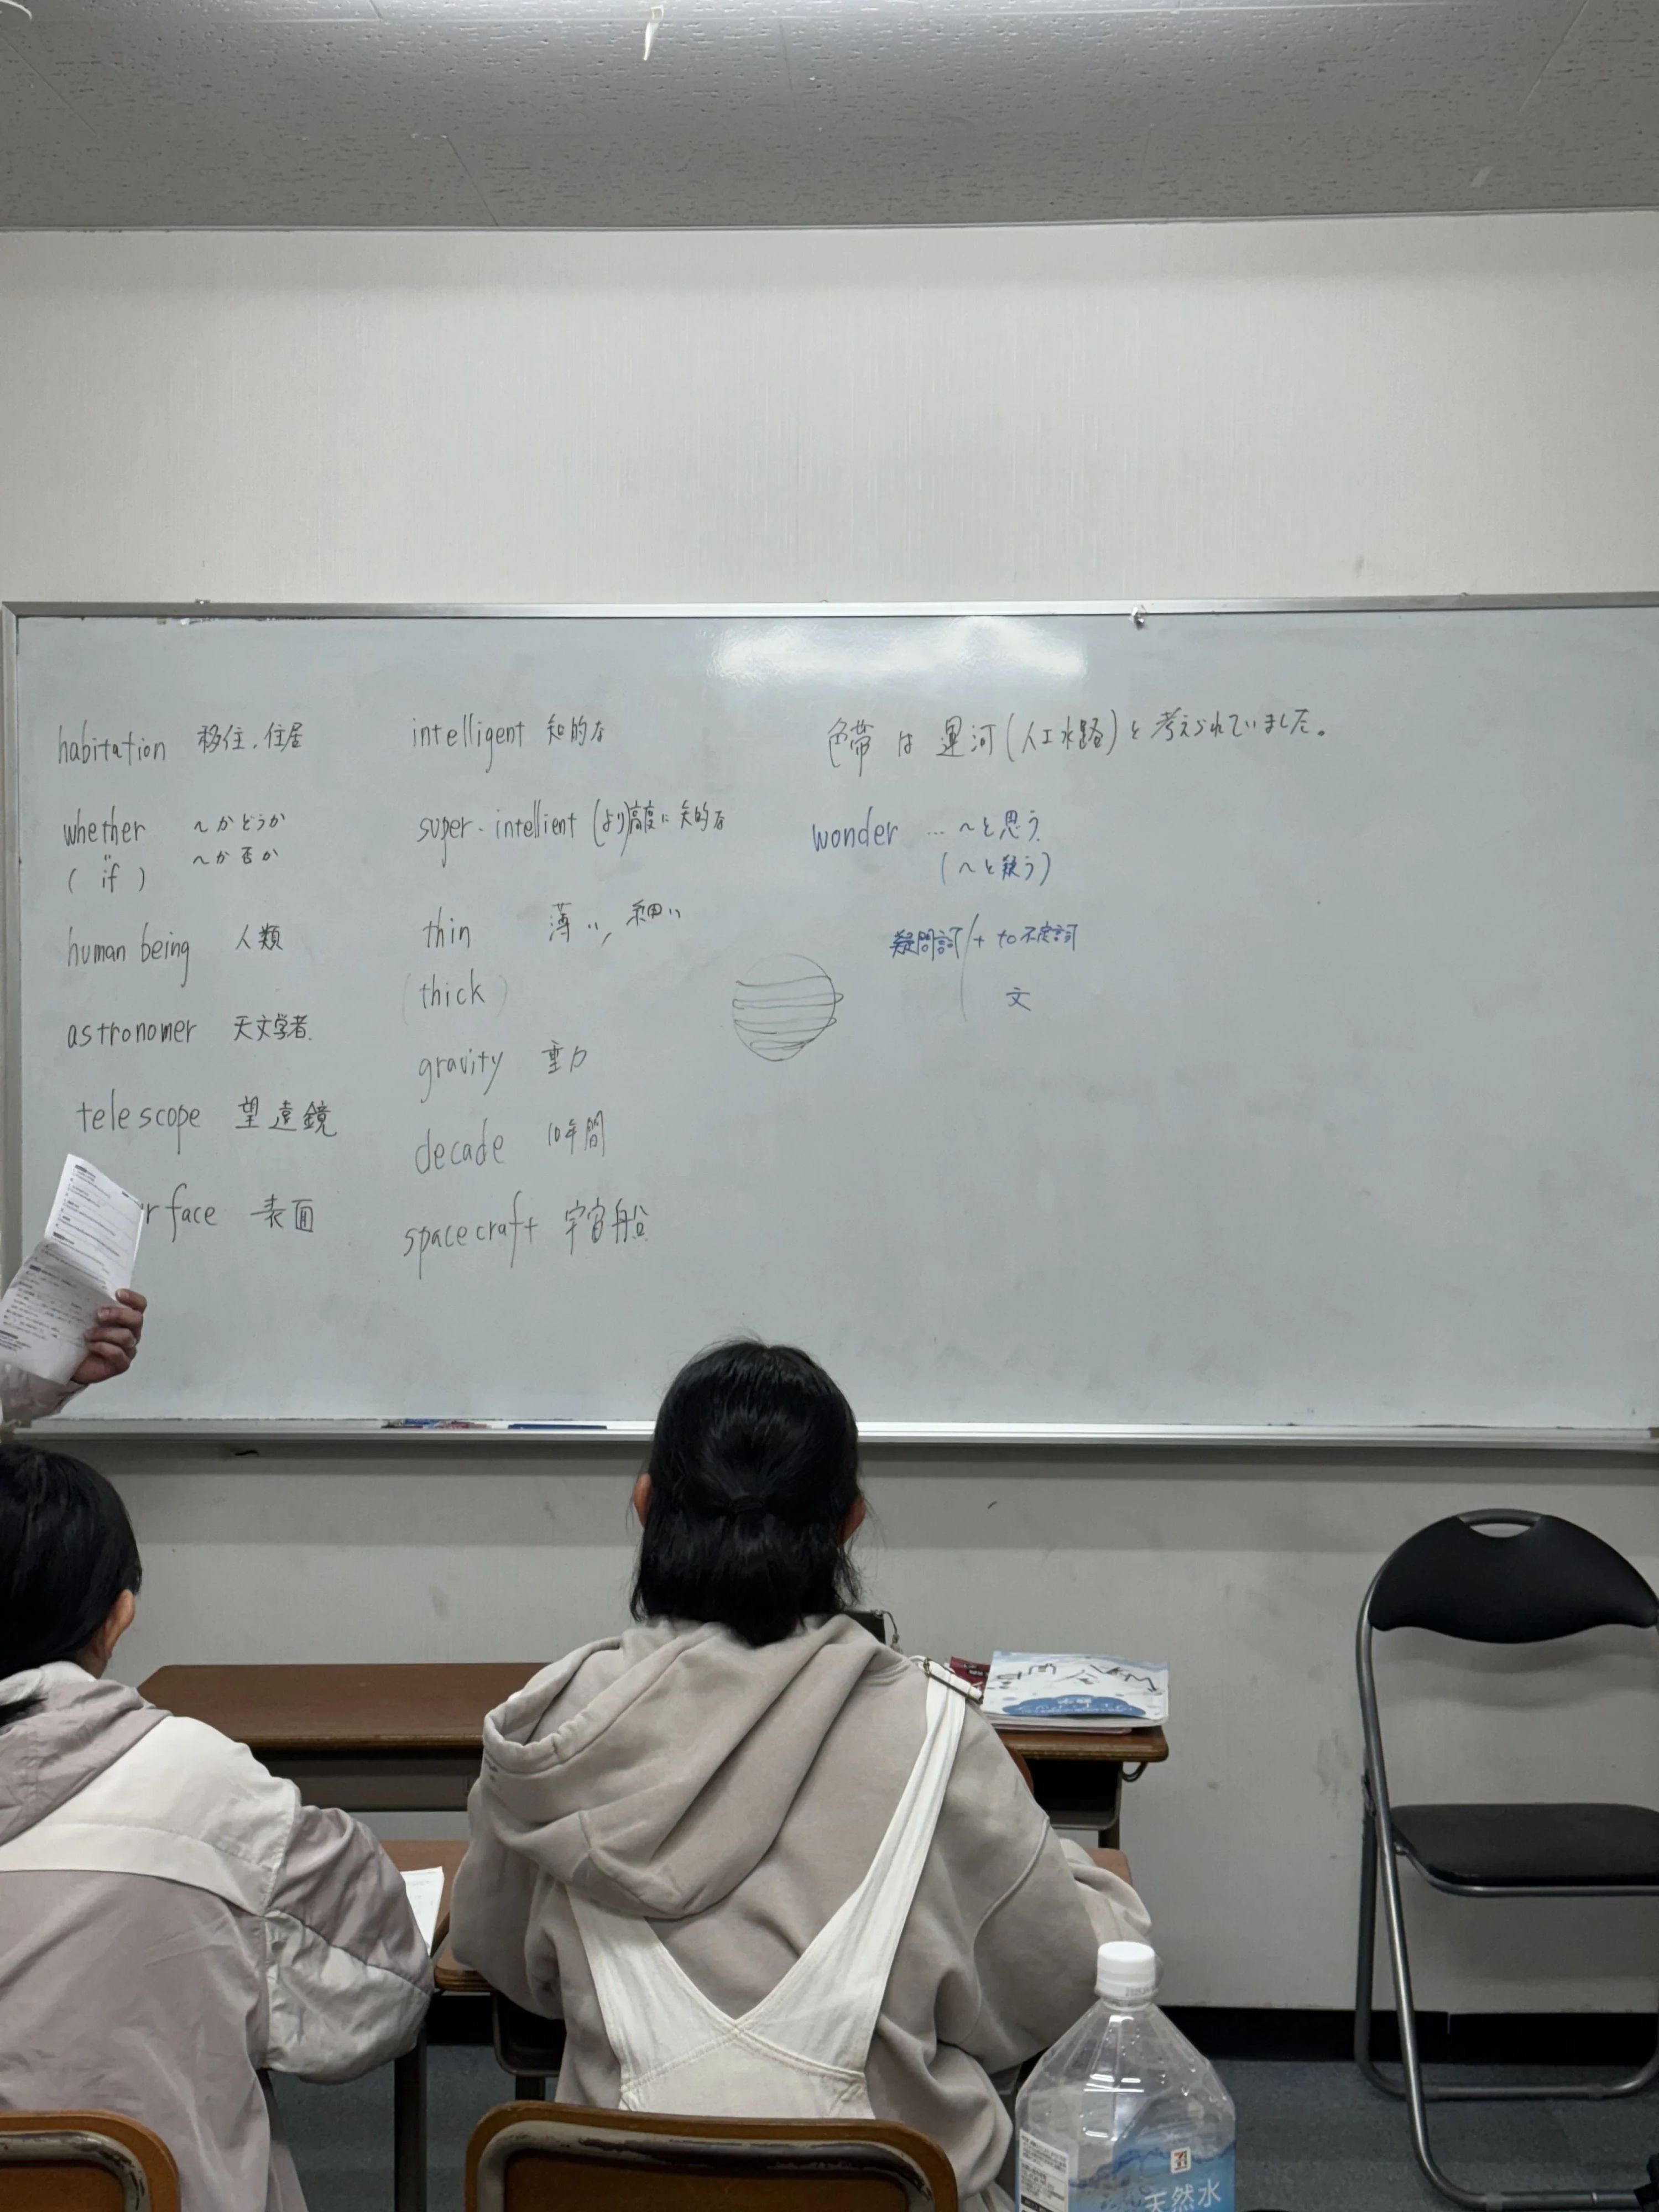 habitation 移住, 住居
whether 〜かどうか
〜か否か
( if )
human being 人類
astronomer 天文学者
telescope 望遠鏡
rface 表面
intelligent 知的な
super-intellient (より)高度に知的な
thin 薄い, 細い
(thick)
gravity 重力
decade 10年間
spacecraft 宇宙船
色帯 は 運河(人工水路)と考えられていました。
wonder … 〜と思う
(〜と疑う)
疑問詞 + to不定詞
文
天然水